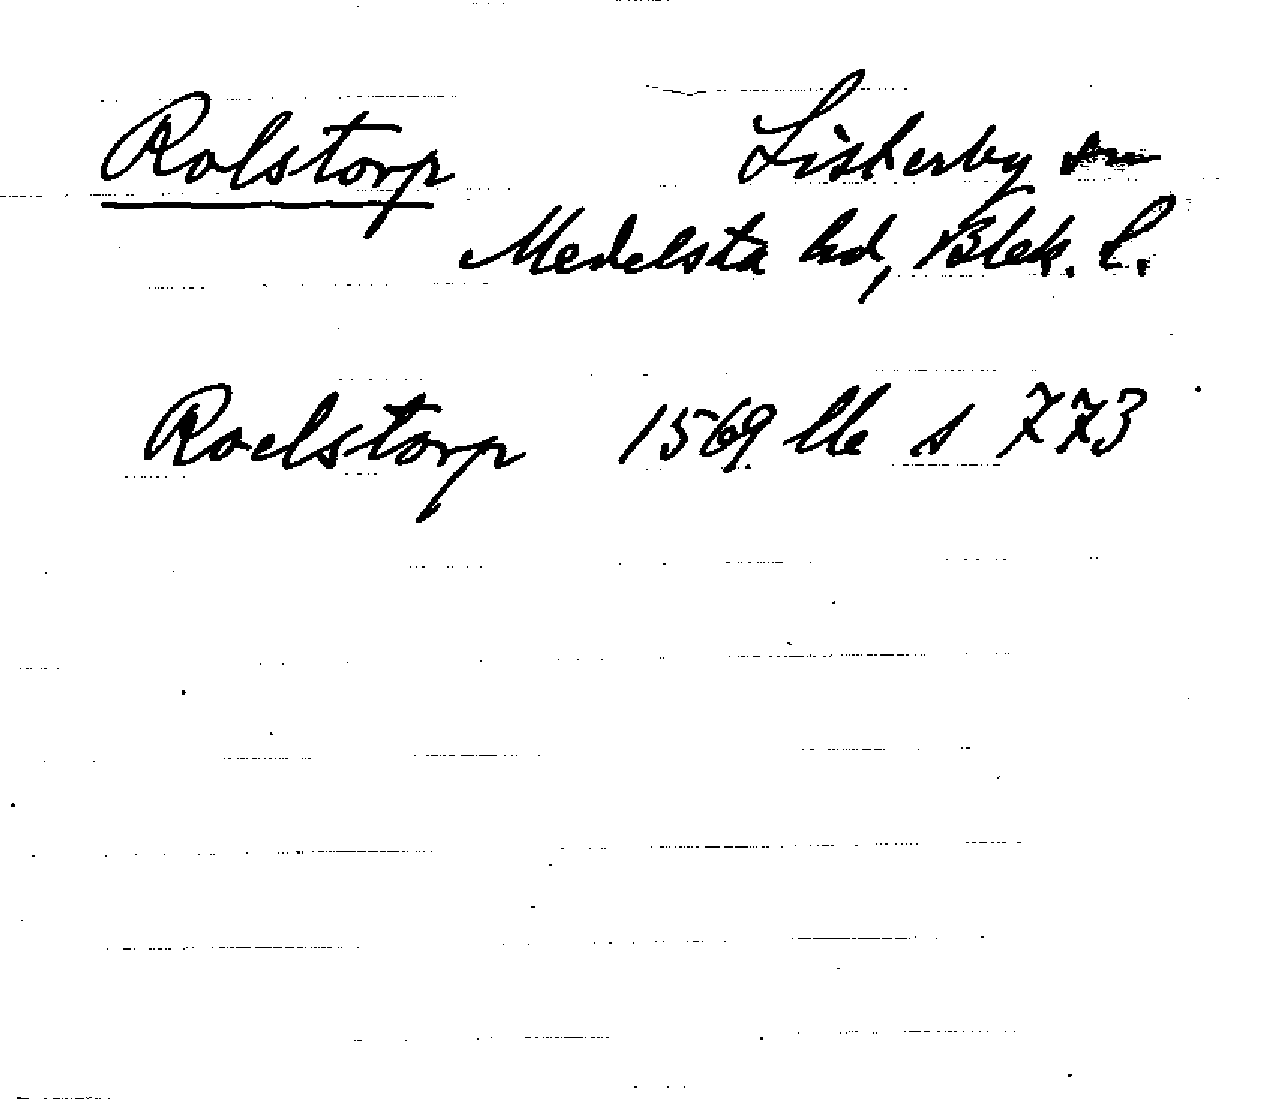 Rolstorp Listerby sn
Medelsta hd, Blek. l.
Roelstorp 1569 lle s 773